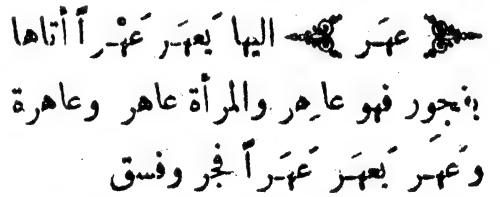 ﴿ عهَر ﴾ اليها يَعهَر عَهْراً أتاها
بفجور فهو عاهِر والمرأة عاهر وعاهرة
وعَهَر يَعهَر عَهَراً فجر وفسق